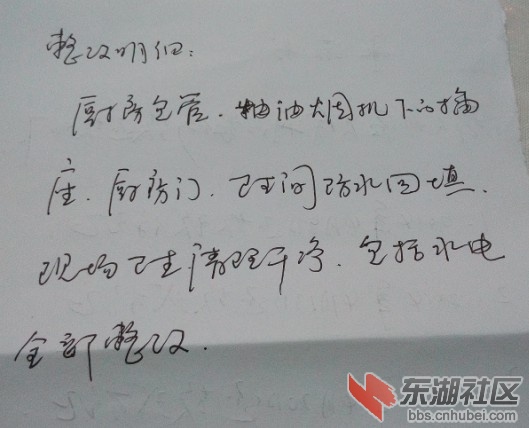 整改明细：
厨房包管．抽油烟机下的插
座．厨房门．卫生间防水回填．
现场卫生清理干净．包括水电
全部整改．
东湖社区
bbs.cnhubei.com